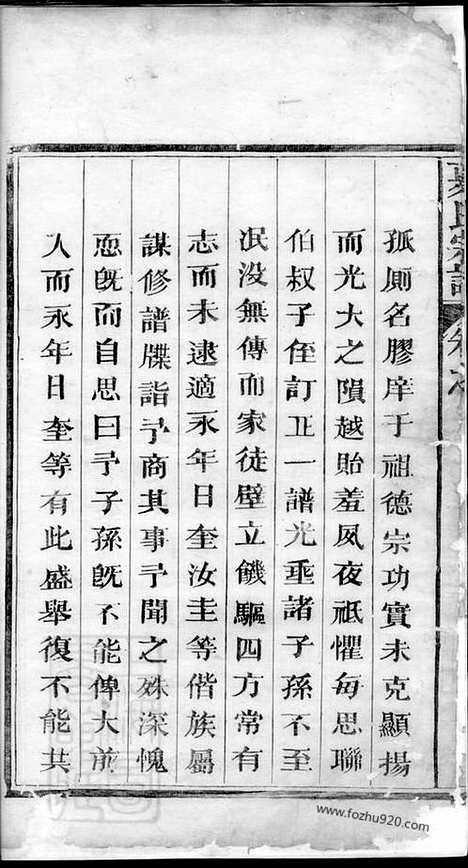 氏宗譜
孤厠名膠庠于祖德宗功實未克顯揚
而光大之隕越貽羞夙夜祇懼每思聯
伯叔子侄訂正一譜光垂諸子孫不至
泯没無傳而家徒壁立饑驅四方常有
志而未逮適永年日奎汝圭等偕族屬
謀修譜牒詣予商其事予聞之殊深愧
恧旣而自思曰予子孫旣不能俾大前
人而永年日奎等有此盛舉復不能共
www.fozhu920.com